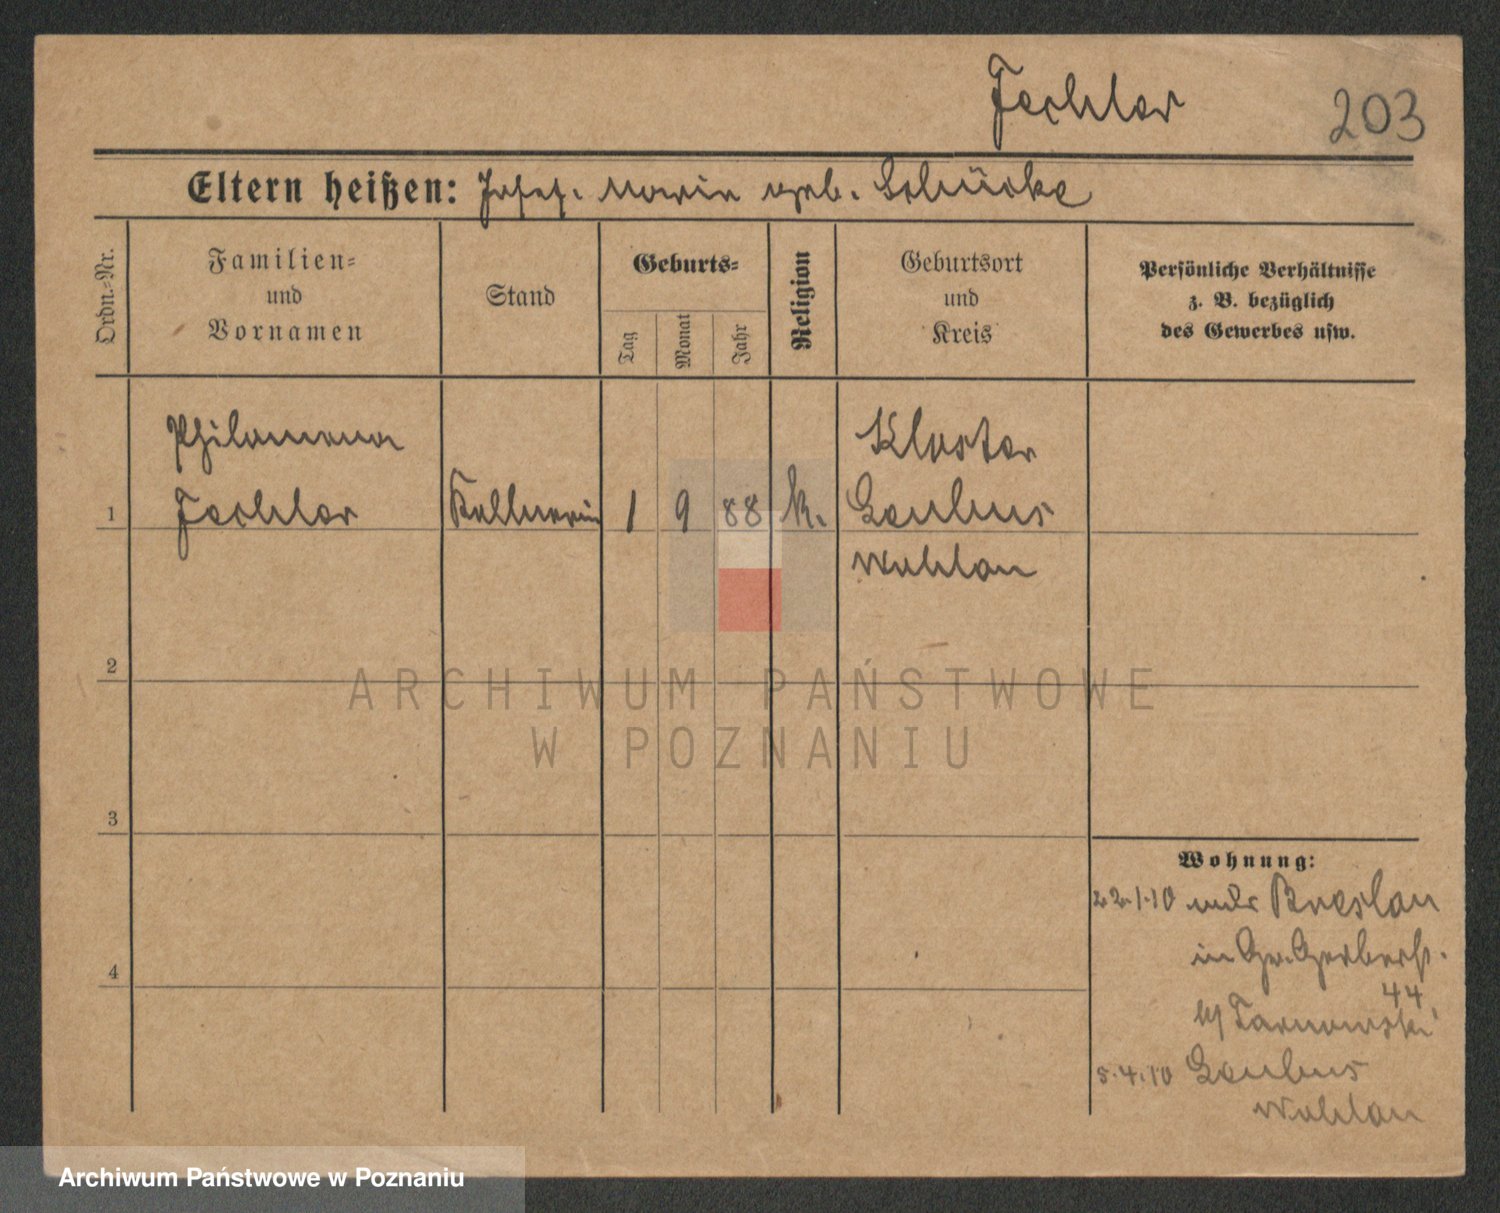 Fechler
203
Eltern heißen: Josef. Maria geb. Schücke
Ordn.-Nr.
Familien-
und
Vornamen
Stand
Geburts-
Tag
Monat
Jahr
Religion
Geburtsort
und
Kreis
Persönliche Verhältnisse
z. B. bezüglich
des Gewerbes usw.
Philomena
Kloster
1 Fechler Kellnerin 1 9 88 k. Leubus
Wohlau
2
ARCHIWUM PAŃSTWOWE
W POZNANIU
3
Wohnung:
22.1.10 Breslau
in Gr. Gerberst.
44
b/ Tarnowski
5.4.10 Leubus
Wohlau
4
Archiwum Państwowe w Poznaniu